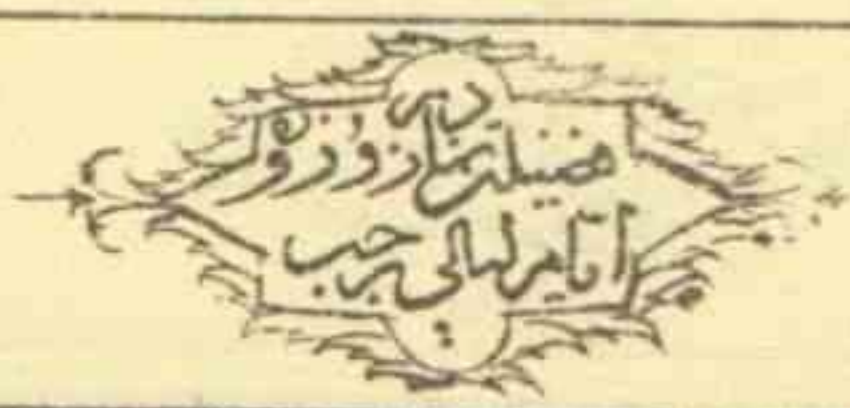 در
فضیلت نماز و روزه
ایام لیالی رجب